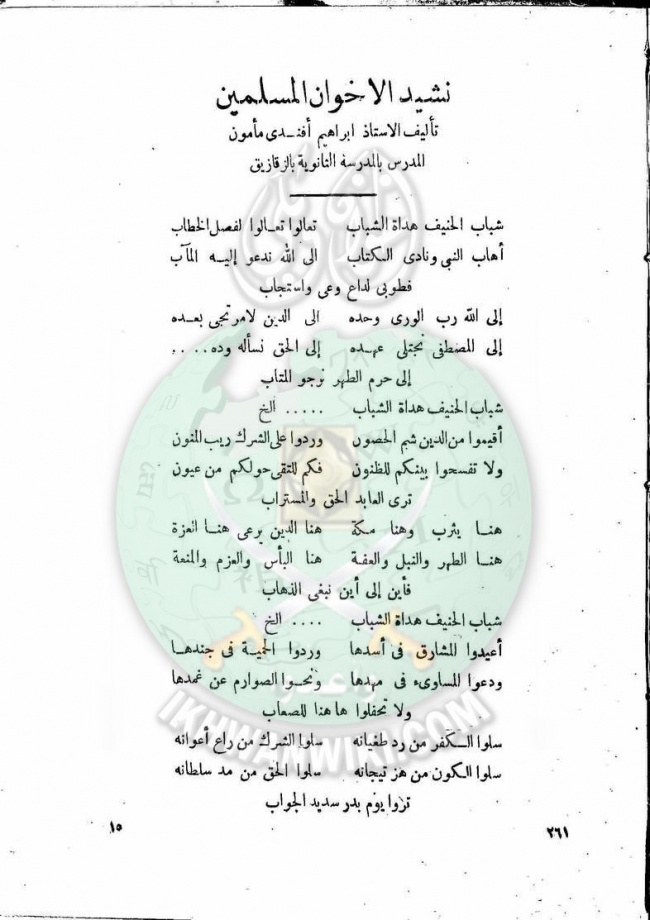 نشيد الاخوان المسلمين
تأليف الاستاذ ابراهيم أفندى مأمون
المدرس بالمدرسة الثانوية بالزقازيق
شباب الحنيف هداة الشباب تعالوا تعالوا لفصل الخطاب
أهاب النبى ونادى الكتاب الى الله ندعو إليه المآب
فطوبى لداع وعى واستجاب
إلى الله رب الورى وحده الى الدين لامرتجى بعده
إلى المصطفى نجتلى عهده إلى الحق نسأله وده....
إلى حرم الطهر نرجو المتاب
شباب الحنيف هداة الشباب ..... الخ
أقيموا من الدين شم الحصون وردوا على الشرك ريب المنون
ولا تفسحوا بينكم للظنون فكم للتقى حولكم من عيون
ترى العابد الحق والمستراب
هنا يثرب وهنا مكة هنا الدين يرعى هنا العزة
هنا الطهر والنبل والعفة هنا البأس والعزم والمنعة
فأين إلى أين نبغى الذهاب
شباب الحنيف هداة الشباب .... الخ
أعيدوا المشارق فى أسدها وردوا الحمية فى جندها
ودعوا المساوىء فى مهدها ونحوا الصوارم عن غمدها
ولا تحفلوا ها هنا للصعاب
سلوا الكفر من رد طغيانه سلوا الشرك من راع أعوانه
سلوا الكون من هز تيجانه سلوا الحق من مد سلطانه
تروا يوم بدر سديد الجواب
٢٦١ ١٥
IKHWANWIKI.COM
وأعدوا